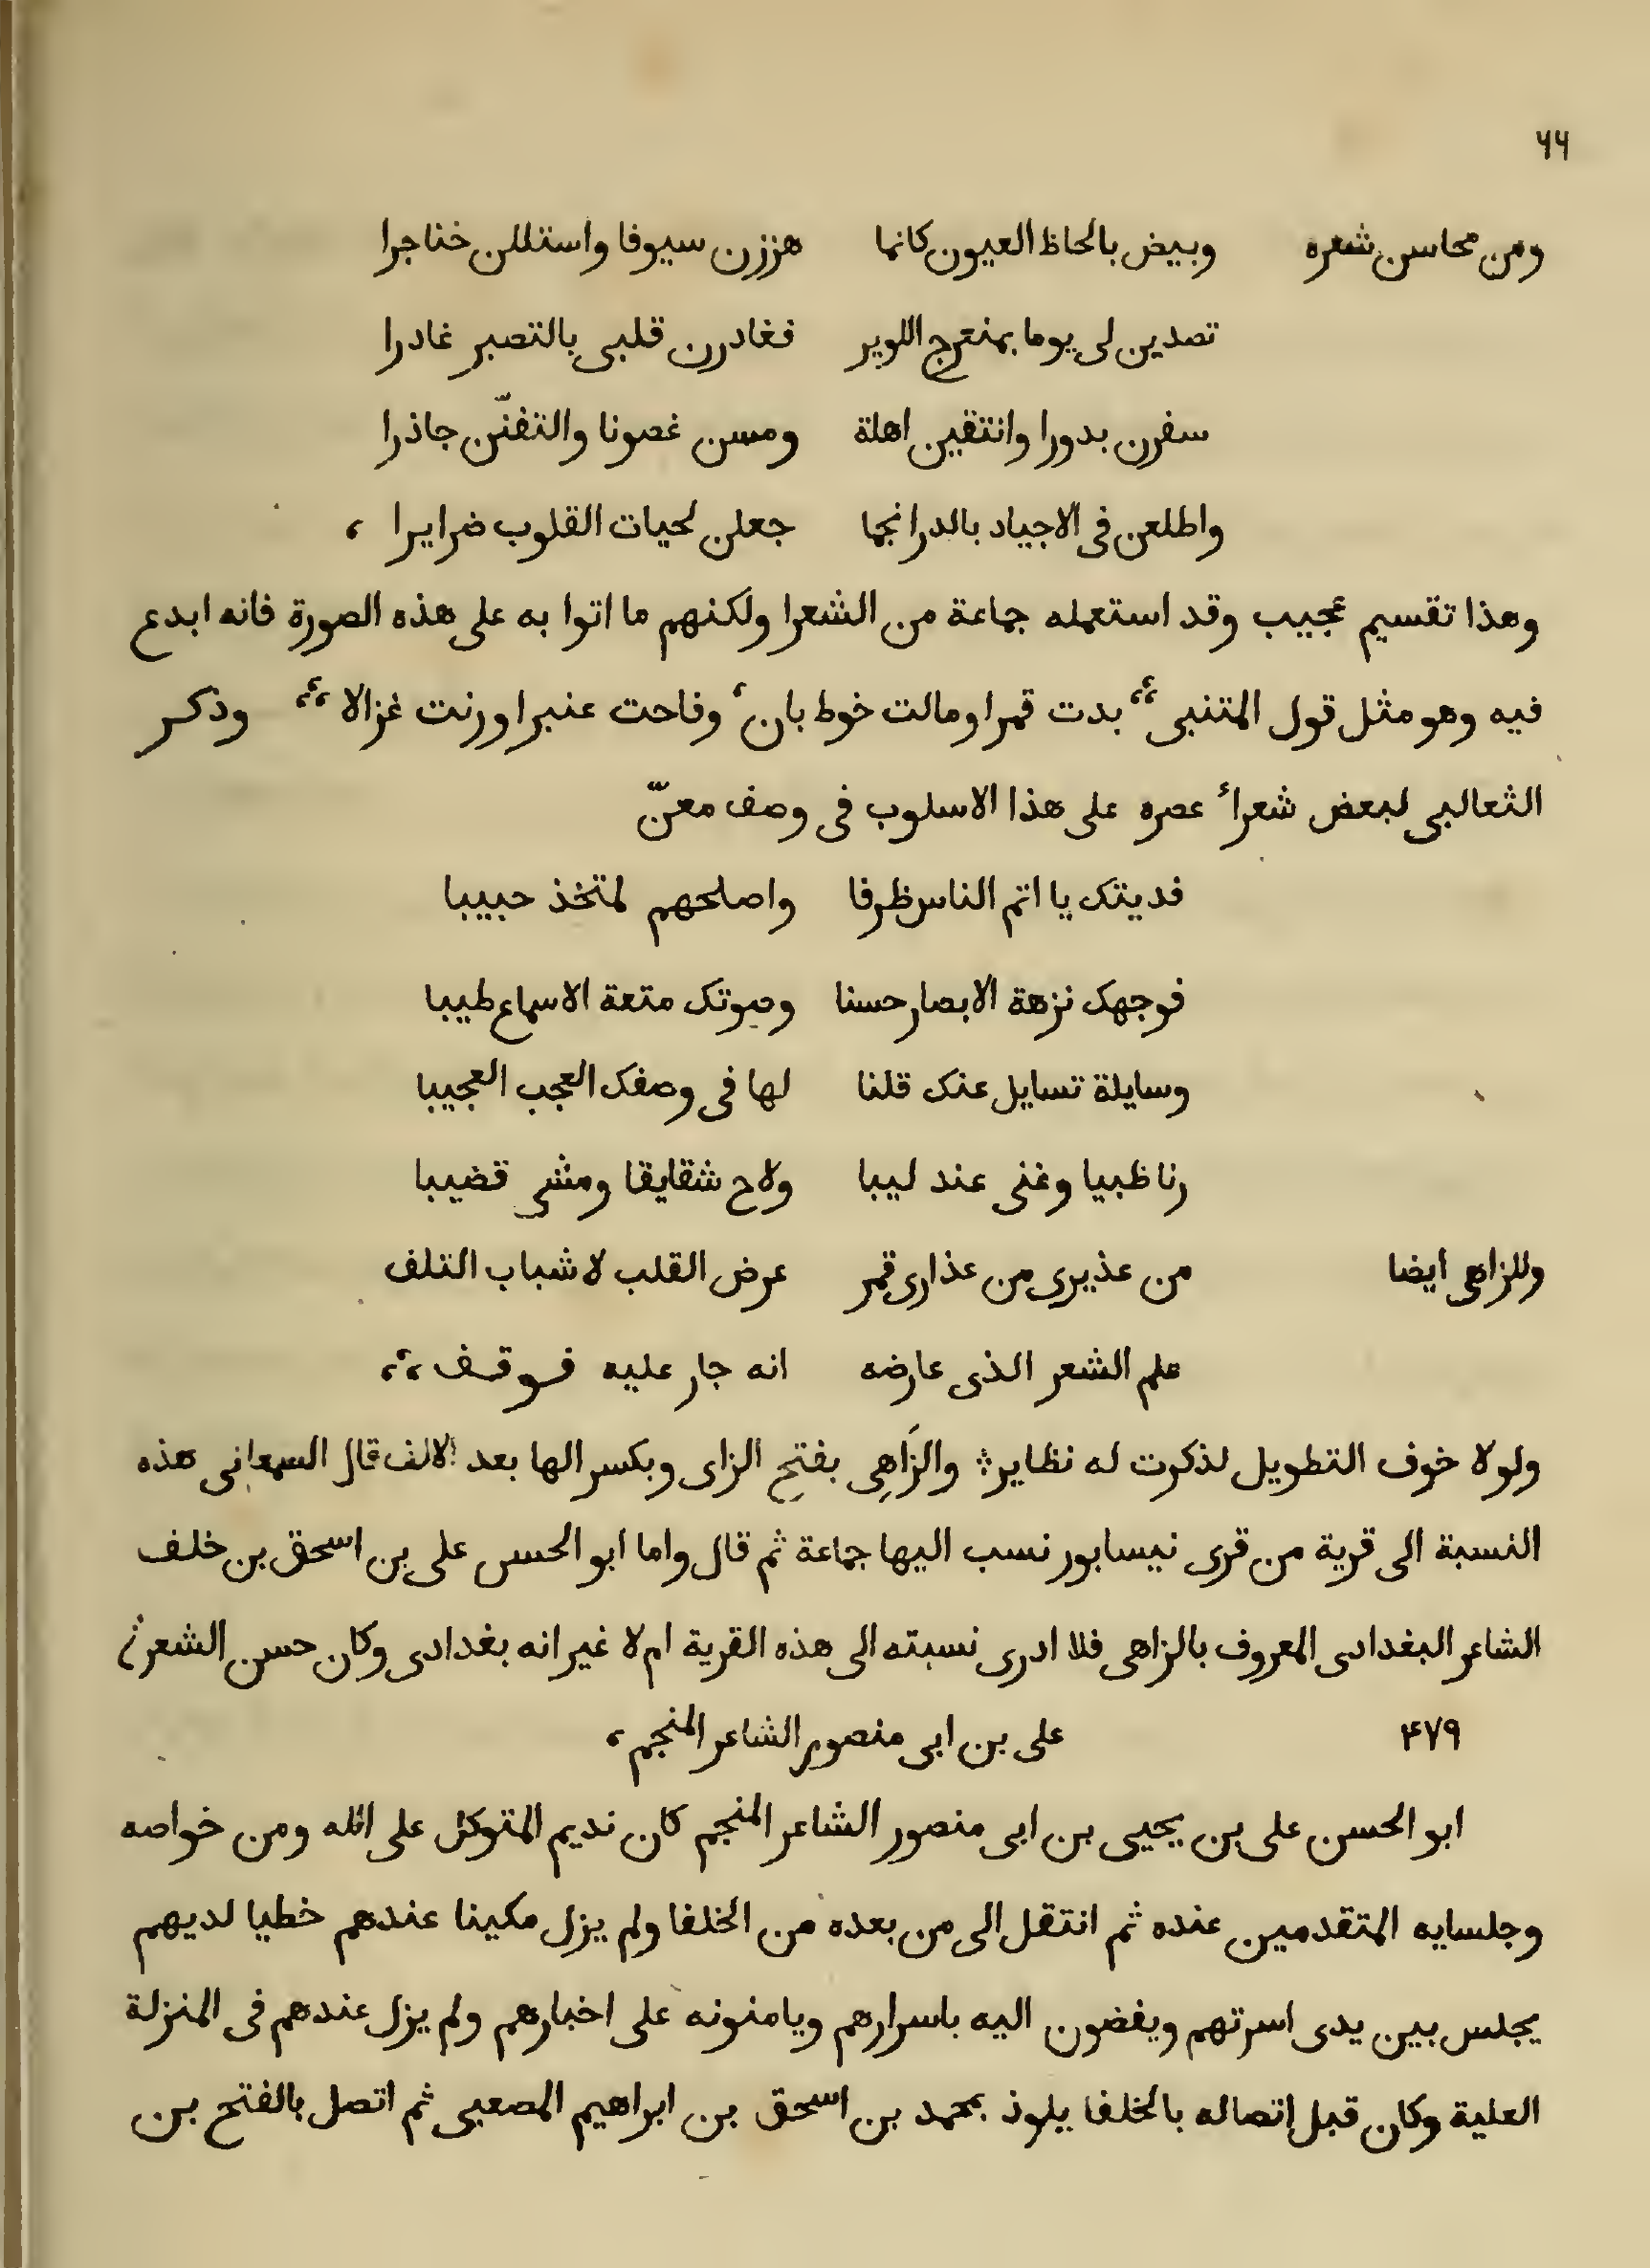 ٦٦
ومن محاسن شعره وبيض بالحاظ العيون كانما هززن سيوفا واستللن خناجرا
تصدين لى يوما بمنعرج اللوى فغادرن قلبى بالتصبر غادرا
سفرن بدورا وانتقبن اهلة ومسن غصونا والتفتّن جاذرا
واطلعن فى الاجياد بالدر انجما جعلن لحبات القلوب ضرايرا ،
وهذا تقسيم عجيب وقد استعمله جماعة من الشعرا ولكنهم ما اتوا به على هذه الصورة فانه ابدع
فيه وهو مثل قول المتنبى ،، بدت قمرا ومالت خوط بان ، وفاحت عنبرا ورنت غزالا ،، وذكر
الثعالبى لبعض شعراء عصره على هذا الاسلوب فى وصف مغنّ
فديتك يا اتم الناس ظرفا واصلحهم لمتخذ حبيبا
فوجهك نزهة الابصار حسنا وصوتك متعة الاسماع طيبا
وسايلة تسايل عنك قلنا لها فى وصفك العجب العجيبا
رنا ظبيا وغنى عندليبا ولاح شقايقا ومشى قضيبا
وللزاهى ايضا من عذيرى من عذارى قمر عرض القلب لاشباب التلف
علم الشعر الذى عارضه انه جار عليه فوقف ،،
ولولا خوف التطويل لذكرت له نظاير والزَاهِى بفتح الزاى وبكسر الها بعد الالف قال السمعانى هذه
النسبة الى قرية من قرى نيسابور نسب اليها جماعة ثم قال واما ابو الحسن على بن اسحق بن خلف
الشاعر البغدادى المعروف بالزاهى فلا ادرى نسبته الى هذه القرية ام لا غير انه بغدادى وكان حسن الشعر
۴۷۹ على بن ابى منصور الشاعر المنجم ،
ابو الحسن على بن يحيى بن ابى منصور الشاعر المنجم كان نديم المتوكل على الله ومن خواصه
وجلسايه المتقدمين عنده ثم انتقل الى من بعده من الخلفا ولم يزل مكينا عندهم خطيا لديهم
يجلس بين يدى اسرتهم ويفضون اليه باسرارهم ويامنونه على اخبارهم ولم يزل عندهم فى المنزلة
العلية وكان قبل اتصاله بالخلفا يلوذ بمحمد بن اسحق بن ابراهيم المصعبى ثم اتصل بالفتح بن